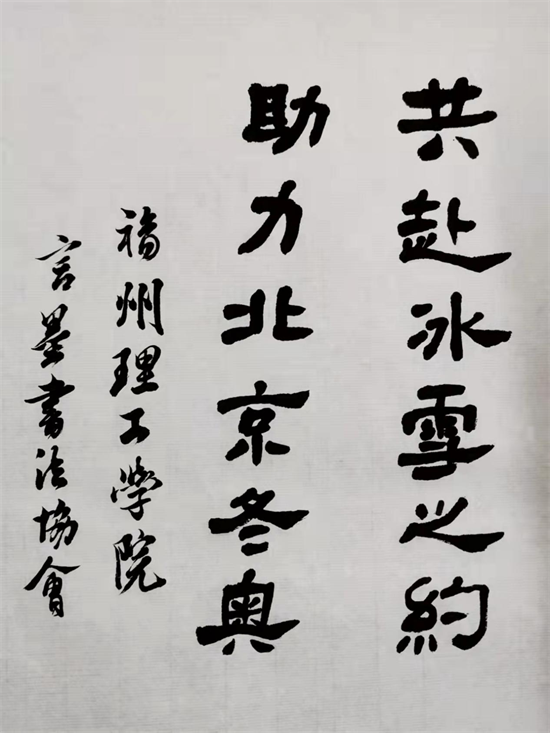 共赴冰雪之約
助力北京冬奥
福州理工学院
言墨書法協會